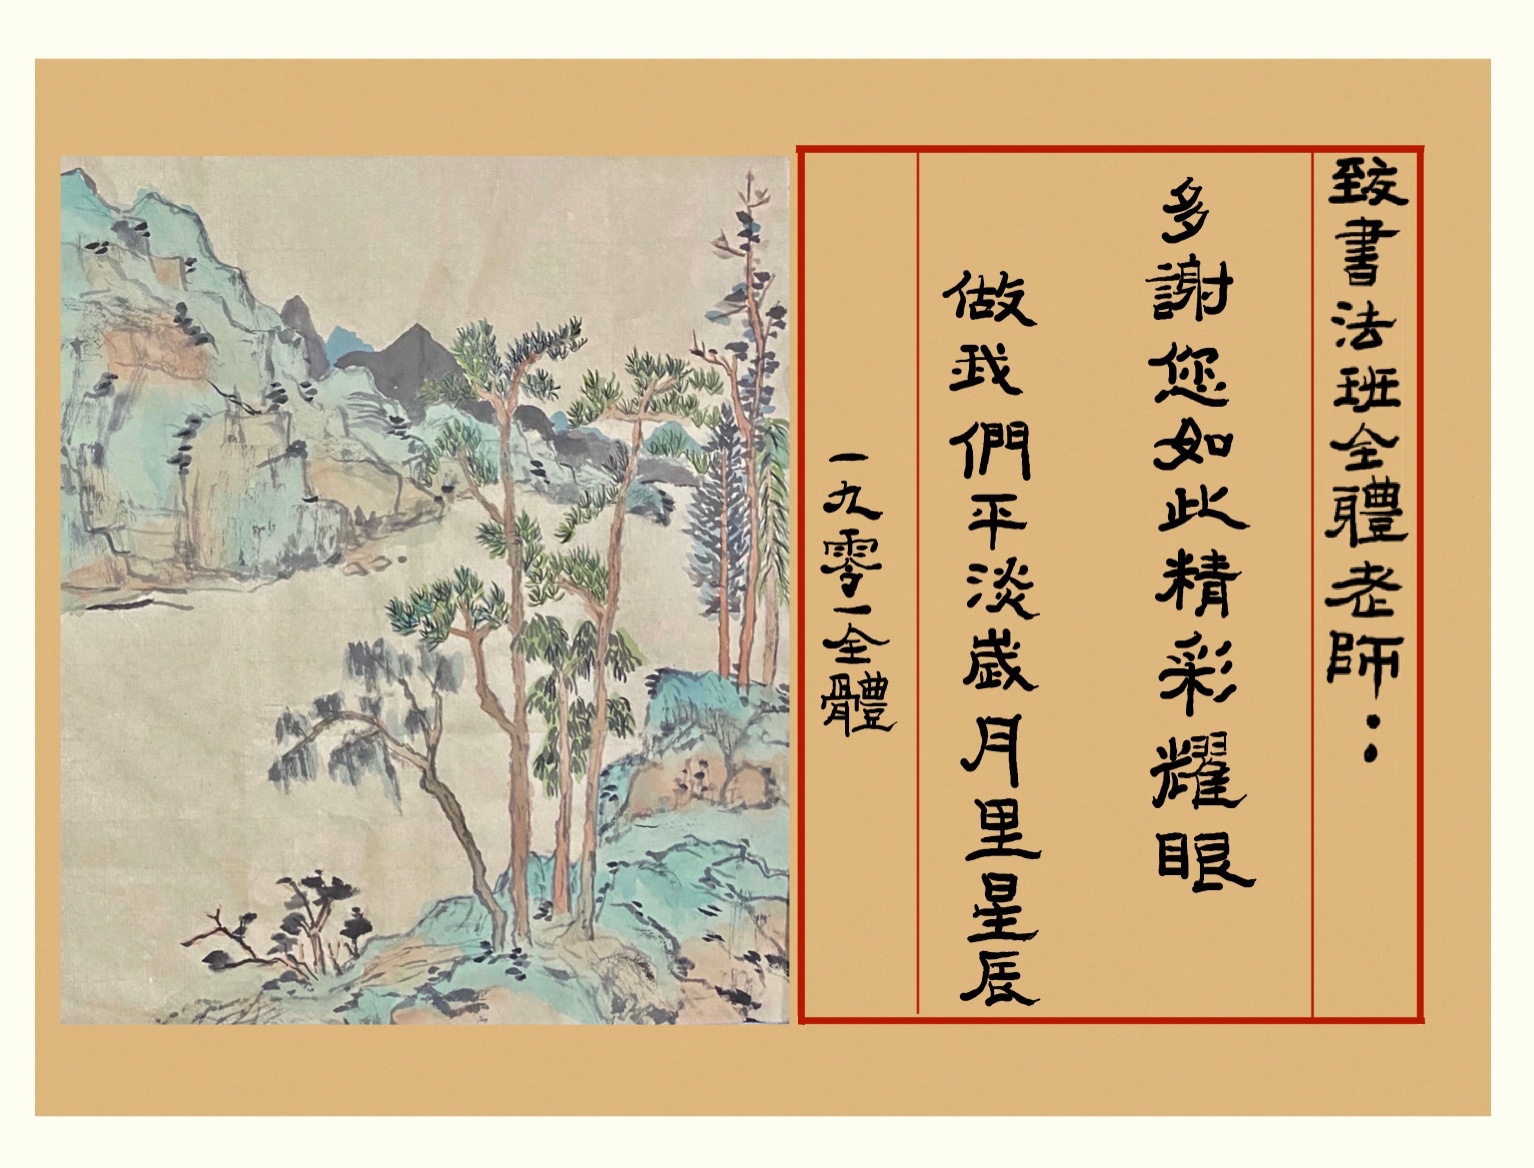 致書法班全體老師：
多謝您如此精彩耀眼
做我們平淡歲月里星辰
一九零一全體